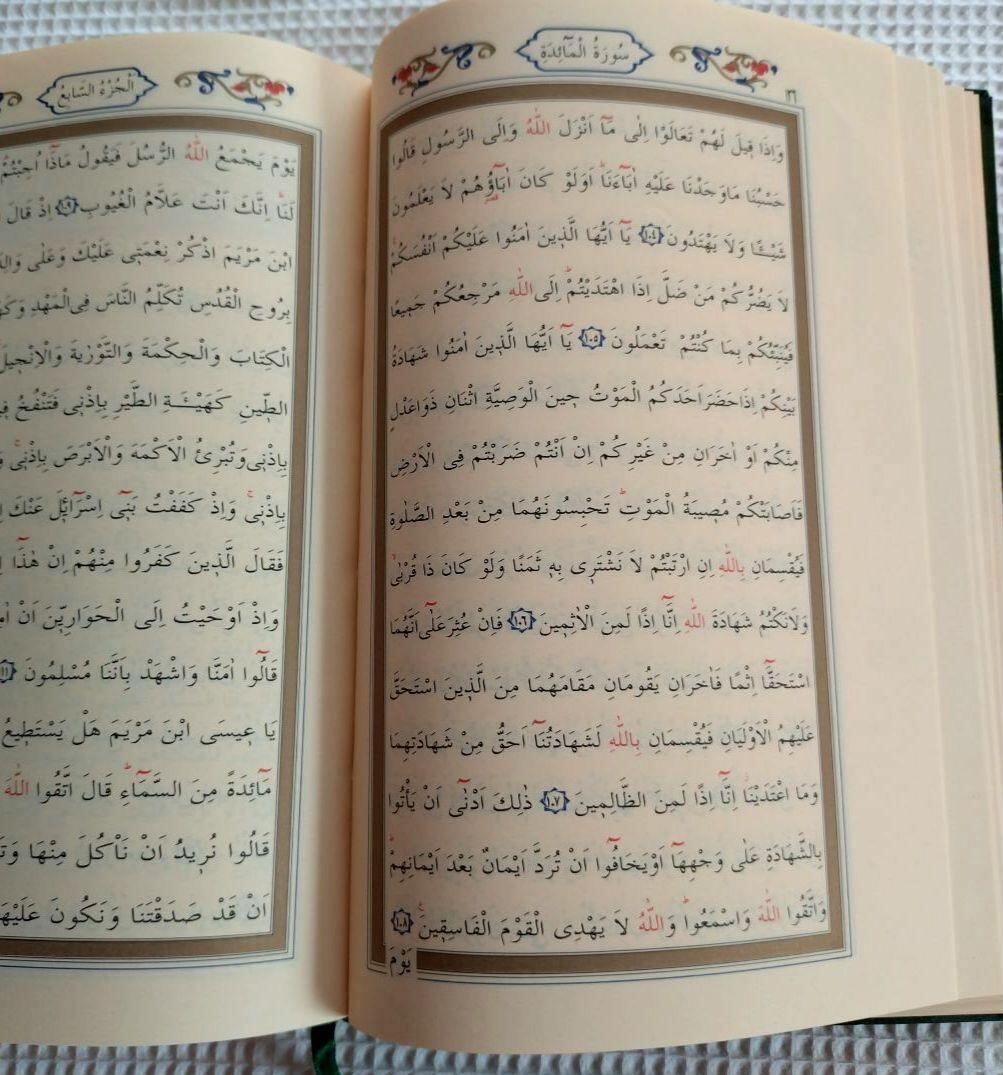 سُورَةُ الْمَائِدَةِ
٣١
وَاِذَا قٖيلَ لَهُمْ تَعَالَوْا اِلٰى مَٓا اَنْزَلَ اللّٰهُ وَاِلَى الرَّسُولِ قَالُوا
حَسْبُنَا مَاوَجَدْنَا عَلَيْهِ اٰبَٓاءَنَاۜ اَوَلَوْ كَانَ اٰبَٓاؤُ۬هُمْ لَا يَعْلَمُونَ
شَيْـًٔا وَلَا يَهْتَدُونَ ﴿١٠٤﴾ يَٓا اَيُّهَا الَّذٖينَ اٰمَنُوا عَلَيْكُمْ اَنْفُسَكُمْۚ
لَا يَضُرُّكُمْ مَنْ ضَلَّ اِذَا اهْتَدَيْتُمْۜ اِلَى اللّٰهِ مَرْجِعُكُمْ جَمٖيعًا
فَيُنَبِّئُكُمْ بِمَا كُنْتُمْ تَعْمَلُونَ ﴿١٠٥﴾ يَٓا اَيُّهَا الَّذٖينَ اٰمَنُوا شَهَادَةُ
بَيْنِكُمْ اِذَاحَضَرَ اَحَدَكُمُ الْمَوْتُ حٖينَ الْوَصِيَّةِ اثْنَانِ ذَوَاعَدْلٍ
مِنْكُمْ اَوْ اٰخَرَانِ مِنْ غَيْرِكُمْ اِنْ اَنْتُمْ ضَرَبْتُمْ فِى الْاَرْضِ
فَاَصَابَتْكُمْ مُصٖيبَةُ الْمَوْتِۜ تَحْبِسُونَهُمَا مِنْ بَعْدِ الصَّلٰوةِ
فَيُقْسِمَانِ بِاللّٰهِ اِنِ ارْتَبْتُمْ لَا نَشْتَرٖى بِهٖ ثَمَنًا وَلَوْ كَانَ ذَا قُرْبٰىۙ
وَلَانَكْتُمُ شَهَادَةَ اللّٰهِ اِنَّٓا اِذًا لَمِنَ الْاٰثِمٖينَ ﴿١٠٦﴾ فَاِنْ عُثِرَ عَلٰٓى اَنَّهُمَا
اسْتَحَقَّٓا اِثْمًا فَاٰخَرَانِ يَقُومَانِ مَقَامَهُمَا مِنَ الَّذٖينَ اسْتَحَقَّ
عَلَيْهِمُ الْاَوْلَيَانِ فَيُقْسِمَانِ بِاللّٰهِ لَشَهَادَتُنَٓا اَحَقُّ مِنْ شَهَادَتِهِمَا
وَمَا اعْتَدَيْنَاۘ اِنَّٓا اِذًا لَمِنَ الظَّالِمٖينَ ﴿١٠٧﴾ ذٰلِكَ اَدْنٰٓى اَنْ يَأْتُوا
بِالشَّهَادَةِ عَلٰى وَجْهِهَٓا اَوْيَخَافُٓوا اَنْ تُرَدَّ اَيْمَانٌ بَعْدَ اَيْمَانِهِمْۜ
وَاتَّقُوا اللّٰهَ وَاسْمَعُواۜ وَاللّٰهُ لَا يَهْدِى الْقَوْمَ الْفَاسِقٖينَ۟ ﴿١٠٨﴾
يَوْمَ
اَلْجُزْءُ السَّابِعُ
يَوْمَ يَجْمَعُ اللّٰهُ الرُّسُلَ فَيَقُولُ مَاذَٓا اُجِبْتُمْ
لَنَاۜ اِنَّكَ اَنْتَ عَلَّامُ الْغُيُوبِ ﴿١٠٩﴾ اِذْ قَالَ
ابْنَ مَرْيَمَ اذْكُرْ نِعْمَتٖى عَلَيْكَ وَعَلٰى
بِرُوحِ الْقُدُسِ تُكَلِّمُ النَّاسَ فِى الْمَهْدِ
الْكِتَابَ وَالْحِكْمَةَ وَالتَّوْرٰيةَ وَالْاِنْجٖيلَ
الطّٖينِ كَهَيْـَٔةِ الطَّيْرِ بِاِذْنٖى فَتَنْفُخُ
بِاِذْنٖى وَتُبْرِئُ الْاَكْمَهَ وَالْاَبْرَصَ بِاِذْنٖىۚ
بِاِذْنٖىۚ وَاِذْ كَفَفْتُ بَنٖٓى اِسْرَٓائٖلَ عَنْكَ
فَقَالَ الَّذٖينَ كَفَرُوا مِنْهُمْ اِنْ هٰذَٓا
وَاِذْ اَوْحَيْتُ اِلَى الْحَوَارِيّٖنَ اَنْ
قَالُٓوا اٰمَنَّا وَاشْهَدْ بِاَنَّنَا مُسْلِمُونَ
يَا عٖيسَى ابْنَ مَرْيَمَ هَلْ يَسْتَطٖيعُ
مَٓائِدَةً مِنَ السَّمَٓاءِۜ قَالَ اتَّقُوا اللّٰهَ
قَالُوا نُرٖيدُ اَنْ نَأْكُلَ مِنْهَا
اَنْ قَدْ صَدَقْتَنَا وَنَكُونَ عَلَيْهَا